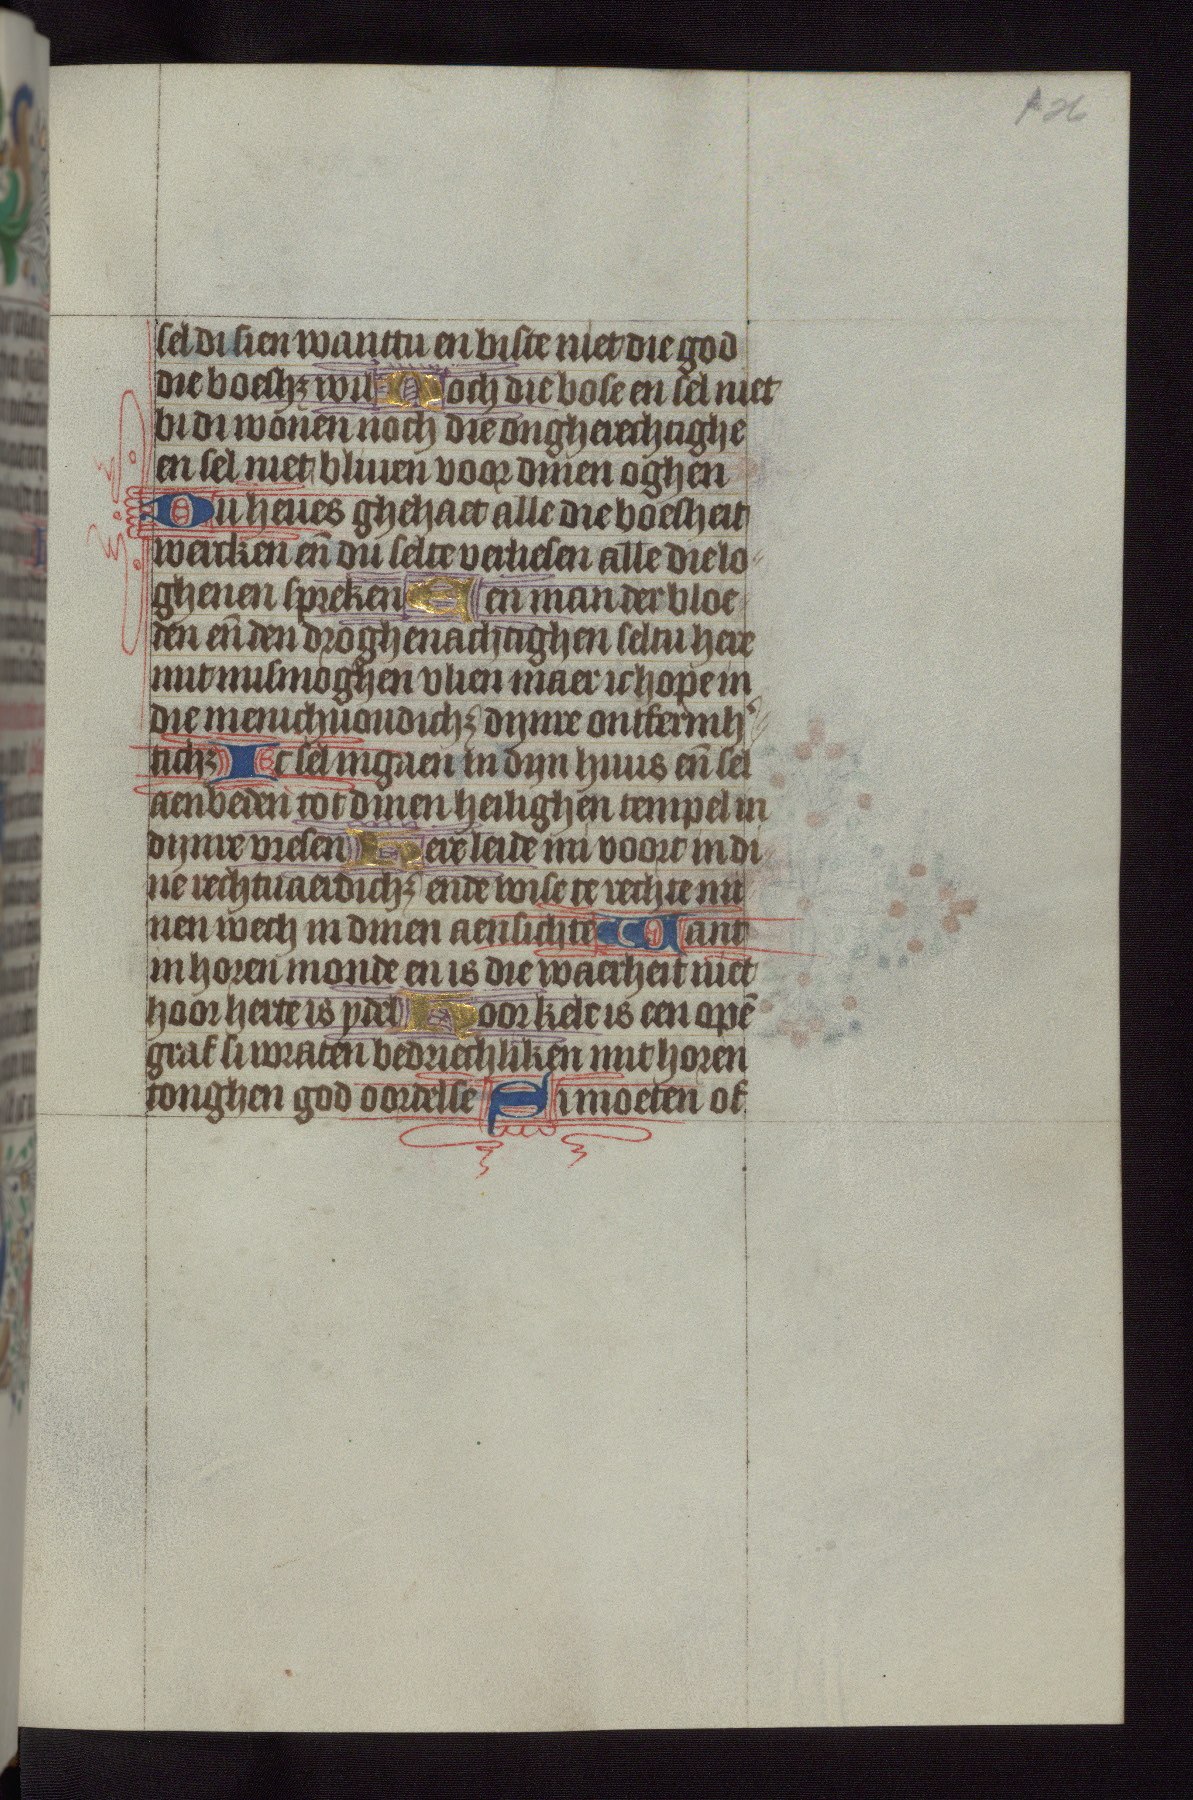 126
sel di sien wanttu en biste niet die god
die boeshꝫ wil Noch die bose en sel niet
bi di wonen noch die ongherechtighe
en sel niet bliuen voor dinen oghen
Du heues ghehaet alle die boesheit
wercken en̄ du selte verliesen alle die lo
ghenen spreken Den man der bloe
den en̄ den droghenachtighen seltu here
mit nusmoghen vlien maer ic hope in
die menichuoudichꝫ dijnre ontfermh
tichꝫ Ic sel ingaen in dijn huus en̄ sel
aenbeden tot dinen heilighen tempel in
dijnre vresen Here leide mi voort in di
ne rechtuaerdichꝫ ende wise te rechte mi
nen wech in dinen aensichte Want
in horen monde en is die waerheit niet
hoor herte is ydel Hoor kele is een opē
graf si wraten bedriechliken mit horen
tonghen god oordelse Si moeten of